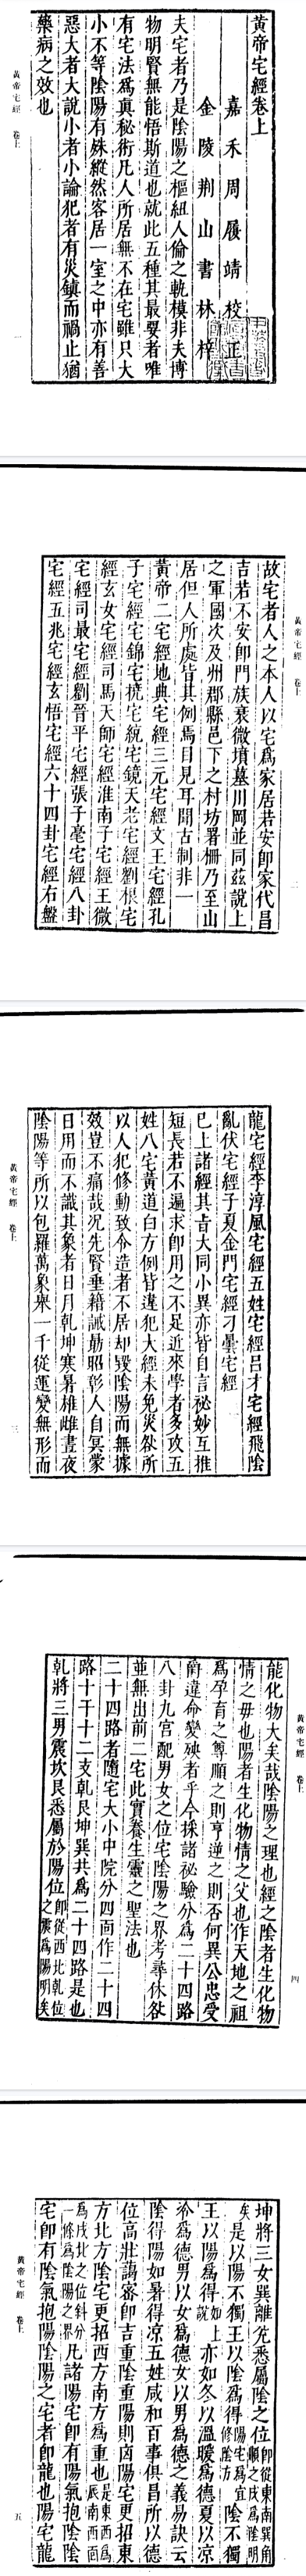 黃帝宅經卷上
嘉禾周履靖校正
金陵荆山書林梓
夫宅者乃是陰陽之樞紐人倫之軌模非夫博
物明賢無能悟斯道也就此五種其最要者唯
有宅法爲真秘術凡人所居無不在宅雖只大
小不等陰陽有殊縱然客居一室之中亦有善
惡大者大說小者小論犯者有災鎮而禍止猶
藥病之效也
黃帝宅經 卷上
一
黃帝宅經 卷上
二
故宅者人之本人以宅爲家居若安即家代昌
吉若不安即門族衰微墳墓川岡並同茲說上
之軍國次及州郡縣邑下之村坊署柵乃至山
居但人所處皆其例焉目見耳聞古制非一
黃帝二宅經地典宅經三元宅經文王宅經孔
子宅經宅錦宅撓宅統宅鏡天老宅經劉根宅
經玄女宅經司馬天師宅經淮南子宅經王微
宅經司最宅經劉晉平宅經張子毫宅經八卦
宅經五兆宅經玄悟宅經六十四卦宅經右盤
龍宅經李淳風宅經五姓宅經呂才宅經飛陰
亂伏宅經子夏金門宅經刁曇宅經
已上諸經其旨大同小異亦皆自言祕妙互推
短長若不遍求即用之不足近來學者多攻五
姓八宅黃道白方例皆違犯大經未免災咎所
以人犯修動致令造者不居却毀陰陽而無據
效豈不痛哉况先賢垂籍誡勗昭彰人自冥蒙
日用而不識其象者日月乾坤寒暑雄雌晝夜
陰陽等所以包羅萬象舉一千從運變無形而
黃帝宅經 卷上
三
黃帝宅經 卷上
四
能化物大矣哉陰陽之理也經之陰者生化物
情之母也陽者生化物情之父也作天地之祖
爲孕育之尊順之則亨逆之則否何異公忠受
爵違命變殃者乎今採諸祕驗分爲二十四路
八卦九宮配男女之位宅陰陽之界考尋休咎
並無出前二宅此實養生靈之聖法也
二十四路者隨宅大小中院分四面作二十四
路十干十二支乾艮坤巽共爲二十四路是也
乾將三男震坎艮悉屬於陽位即從西北乾位之震爲陽明矣
坤將三女巽離兌悉屬陰之位即從東南巽角順之戌爲陰明
矣是以陽不獨王以陰爲得陽宅爲宜修陰方陰不獨
王以陽爲得如上說亦如冬以溫暖爲德夏以凉
冷爲德男以女爲德女以男爲德之義易訣云
陰得陽如暑得凉五姓咸和百事俱昌所以德
位高壯藹密即吉重陰重陽則凶陽宅更招東
方北方陰宅更招西方南方爲重也是東面爲辰南西面
爲戌北之位斜分一條爲陰陽之界凡諸陽宅即有陽氣抱陰陰
宅即有陰氣抱陽陰陽之宅者即龍也陽宅龍
黃帝宅經 卷上
五